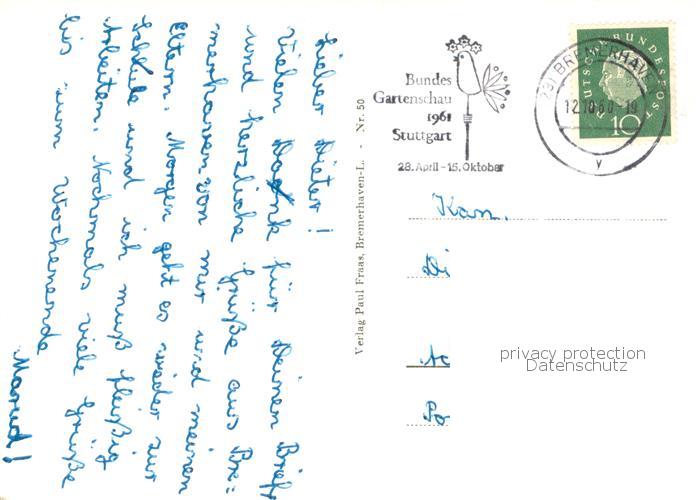 Lieber Dieter!
Vielen Dank für Deinen Brief
und herzliche Grüße aus Bre=
merhaven von mir und meinen
Eltern. Morgen geht es wieder zur
Schule und ich muß fleißig
arbeiten. Nochmals viele Grüße
bis zum Wochenende
Verlag Paul Fraas, Bremerhaven-L. - Nr. 50
Bundes
Gartenschau
1961
Stuttgart
28. April - 15. Oktober
(23) BREMERHAVEN
12.10.60-19
v
DEUTSCHE BUNDESPOST
10
Di
Po
privacy protection
Datenschutz